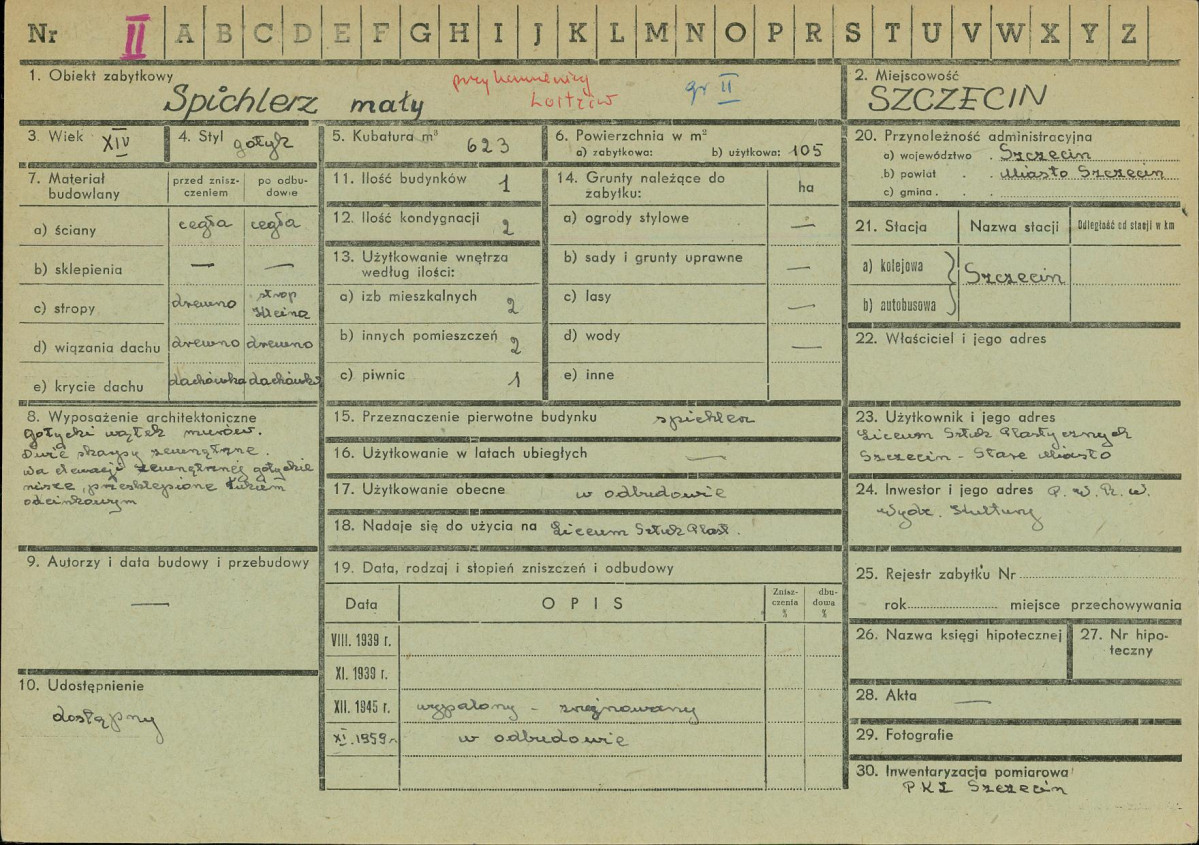 Nr II A B C D E F G H I J K L M N O P R S T U V W X Y Z
1. Obiekt zabytkowy
Spichlerz mały
przy kamienicy
Loitzów
gr II
2. Miejscowość
SZCZECIN
3. Wiek XIV
4. Styl gotyk
5. Kubatura m³ 623
6. Powierzchnia w m²
a) zabytkowa: b) użytkowa: 105
7. Materiał budowlany
przed znisz-
czeniem
po odbu-
dowie
a) ściany cegła cegła
b) sklepienia — —
c) stropy drewno strop Kleina
d) wiązania dachu drewno drewno
e) krycie dachu dachówka dachówka
8. Wyposażenie architektoniczne
gotycki wątek murów.
Dwie skarpy zewnętrzne.
Na elewacji zewnętrznej gotyckie
nisze, przesklepione łukiem
odcinkowym
9. Autorzy i data budowy i przebudowy
—
10. Udostępnienie
dostępny
11. Ilość budynków 1
12. Ilość kondygnacji 2
13. Użytkowanie wnętrza
według ilości:
a) izb mieszkalnych 2
b) innych pomieszczeń 2
c) piwnic 1
14. Grunty należące do
zabytku: ha
a) ogrody stylowe —
b) sady i grunty uprawne —
c) lasy —
d) wody —
e) inne
15. Przeznaczenie pierwotne budynku spichlerz
16. Użytkowanie w latach ubiegłych —
17. Użytkowanie obecne w odbudowie
18. Nadaje się do użycia na Liceum Sztuk Plast.
19. Data, rodzaj i stopień zniszczeń i odbudowy
Data OPIS
Znisz-
czenia
%
dbu-
dowa
%
VIII. 1939 r.
XI. 1939 r.
XII. 1945 r. wypalony - zrujnowany
XI. 1959 r. w odbudowie
20. Przynależność administracyjna
a) województwo . Szczecin
b) powiat . . Miasto Szczecin
c) gmina . .
21. Stacja Nazwa stacji Odległość od stacji w km
a) kolejowa
Szczecin
b) autobusowa
22. Właściciel i jego adres
23. Użytkownik i jego adres
Liceum Sztuk Plastycznych
Szczecin - Stare Miasto
24. Inwestor i jego adres P. W. R. N.
Wydz. Kultury
25. Rejestr zabytku Nr
rok miejsce przechowywania
26. Nazwa księgi hipotecznej
27. Nr hipo-
teczny
28. Akta —
29. Fotografie
30. Inwentaryzacja pomiarowa
PKZ Szczecin